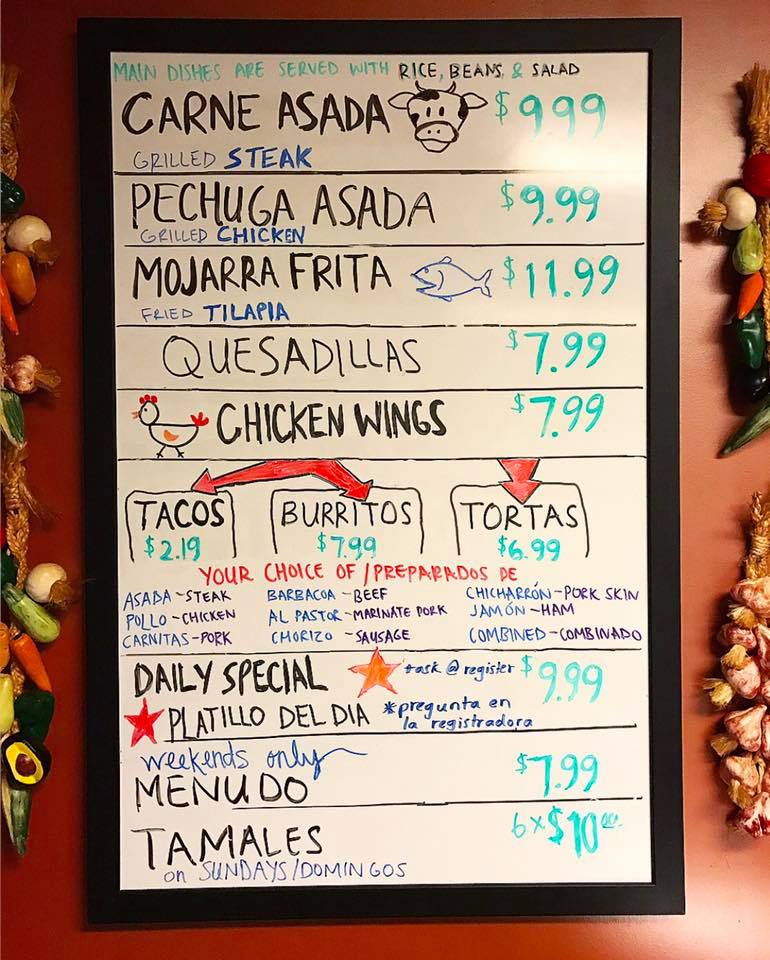 MAIN DISHES ARE SERVED WITH RICE, BEANS, & SALAD
CARNE ASADA $999
GRILLED STEAK
PECHUGA ASADA $9.99
GRILLED CHICKEN
MOJARRA FRITA $11.99
FRIED TILAPIA
QUESADILLAS $7.99
CHICKEN WINGS $7.99
TACOS BURRITOS TORTAS
$2.19 $7.99 $6.99
YOUR CHOICE OF/PREPARADOS DE
ASADA-STEAK BARBACOA-BEEF CHICHARRÓN-PORK SKIN
POLLO-CHICKEN AL PASTOR-MARINATE PORK JAMÓN-HAM
CARNITAS-PORK CHORIZO-SAUSAGE COMBINED-COMBINADO
DAILY SPECIAL *ask @ register $9.99
PLATILLO DEL DIA *pregunta en
la registradora
weekends only
MENUDO $7.99
TAMALES 6x$10.00
on SUNDAYS/DOMINGOS